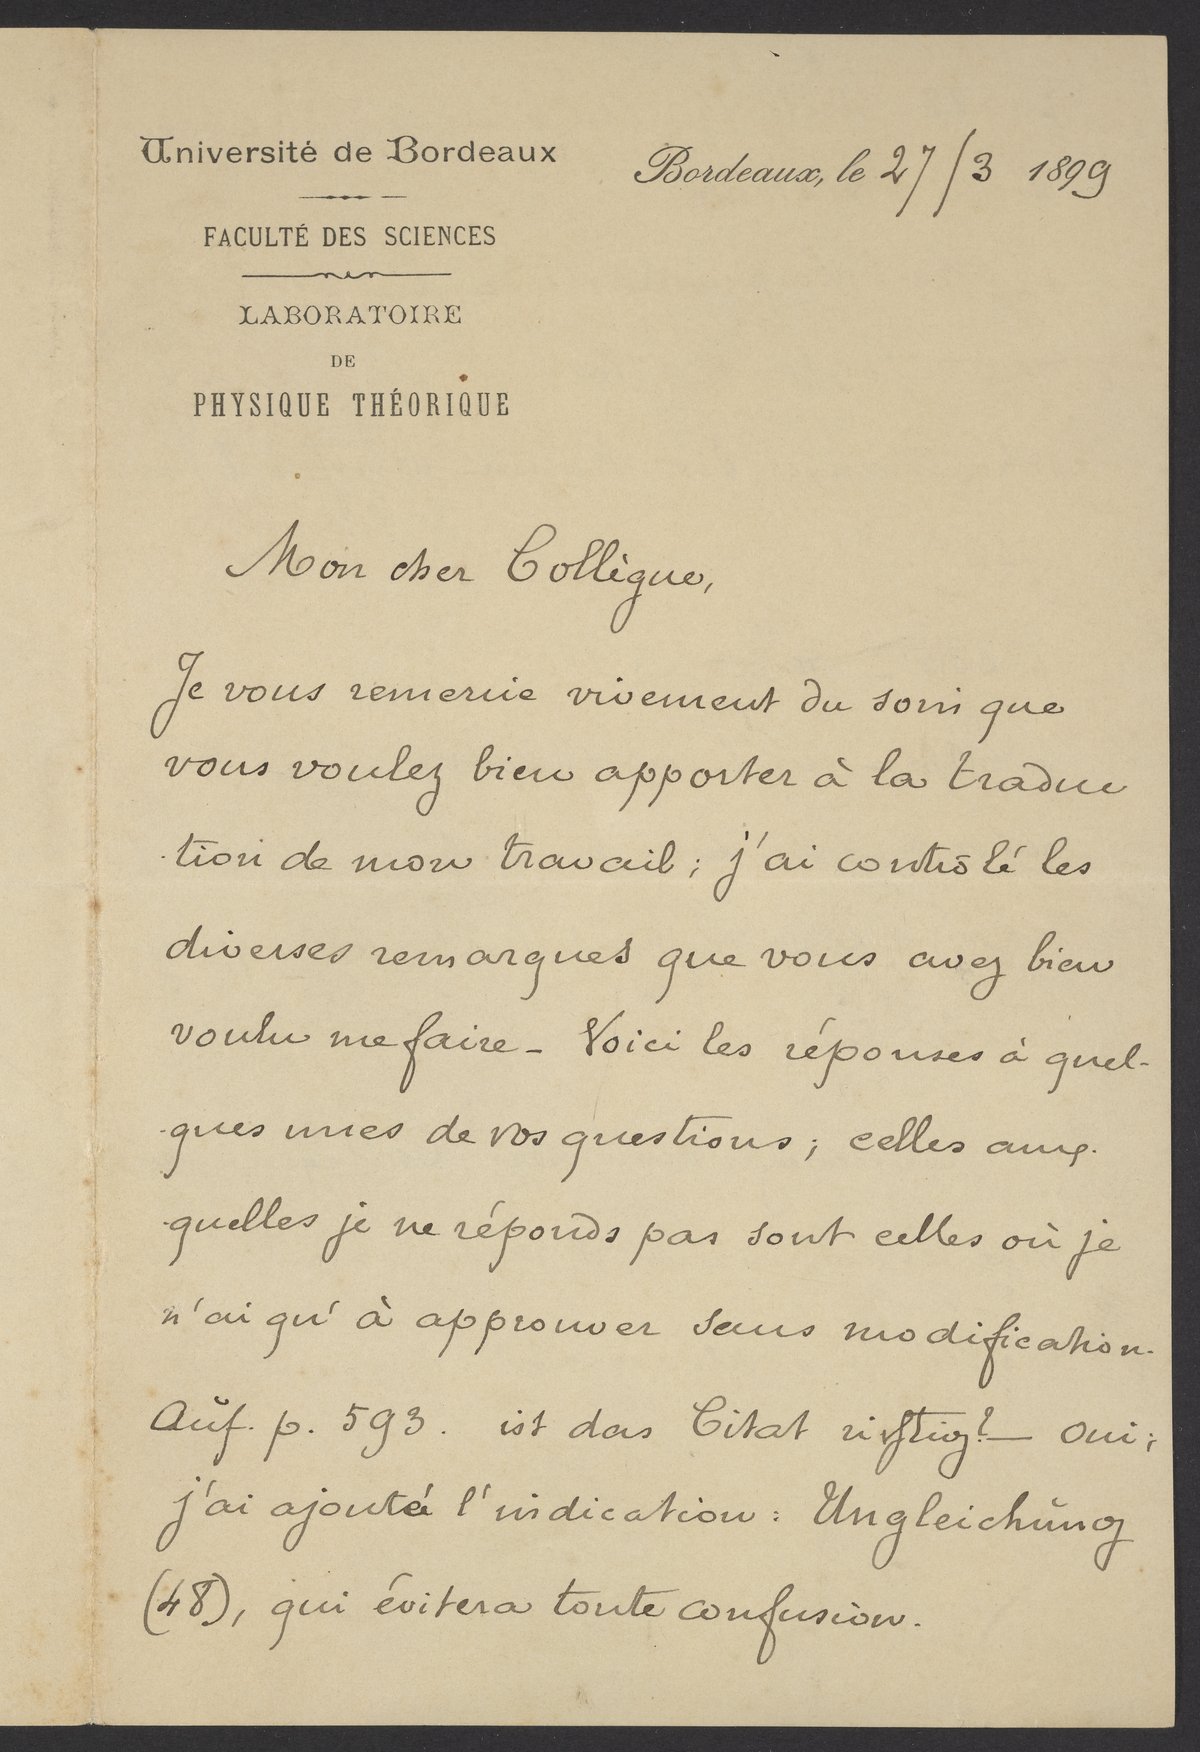 Université de Bordeaux
FACULTÉ DES SCIENCES
LABORATOIRE
DE
PHYSIQUE THÉORIQUE
Bordeaux, le 27/3 1899
Mon cher Collègue,
Je vous remercie vivement du soin que
vous voulez bien apporter à la traduc
-tion de mon travail ; j'ai contrôlé les
diverses remarques que vous avez bien
voulu me faire - Voici les réponses à quel-
-ques unes de vos questions ; celles aux-
-quelles je ne réponds pas sont celles où je
n'ai qu'à approuver sans modification.
Auf. p. 593. ist das Citat richtig? — Oui ;
j'ai ajouté l'indication : Ungleichŭng
(48), qui évitera toute confusion.